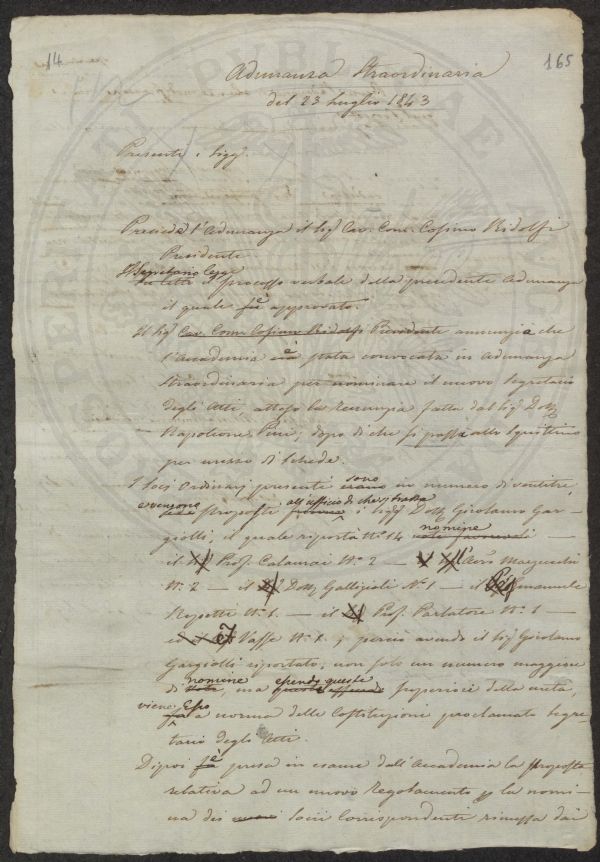 14
165
Adunanza Straordinaria
del 23 Luglio 1843
Presenti i Sigg.
Presiede l'Adunanza il Sig. Cav. Com. Cosimo Ridolfi
Presidente
Il Segretario legge
il processo verbale della precedente Adunanza
il quale è approvato.
Il Sig. Cav. Com. Cosimo Ridolfi Presidente annunzia che
l'Accademia è stata convocata in Adunanza
Straordinaria per nominare il nuovo Segretario
degli Atti, atteso la Renunzia fatta dal Sig. Dott.
Napoleone Pini; dopo di che si passa allo Squittinio
per mezzo di Schede.
I Socj Ordinarj presenti sono in numero di ventitrè,
e vengono proposti all'ufficio di che si tratta i Sigg. Dott. Girolamo Gar-
giolli, il quale riporta N. 14 nomine
il Prof. Calamai N. 2 — l'Avv.
N. 2 — il Dott. Gallizioli N. 1 — il Emanuele
Repetti N. 1 — il Prof. Parlatore N. 1 —
ed il Vasse N. 1; perciò avendo il Sig. Girolamo
Gargiolli riportato, non solo un numero maggiore
di nomine, ma essendo queste superiori della metà,
viene Esso a norma delle Costituzioni proclamato Segre-
tario degli Atti.
Dipoi è presa in esame dall'Accademia la proposta
relativa ad un nuovo Regolamento la nomi-
na dei socii Corrispondente rimessa dai